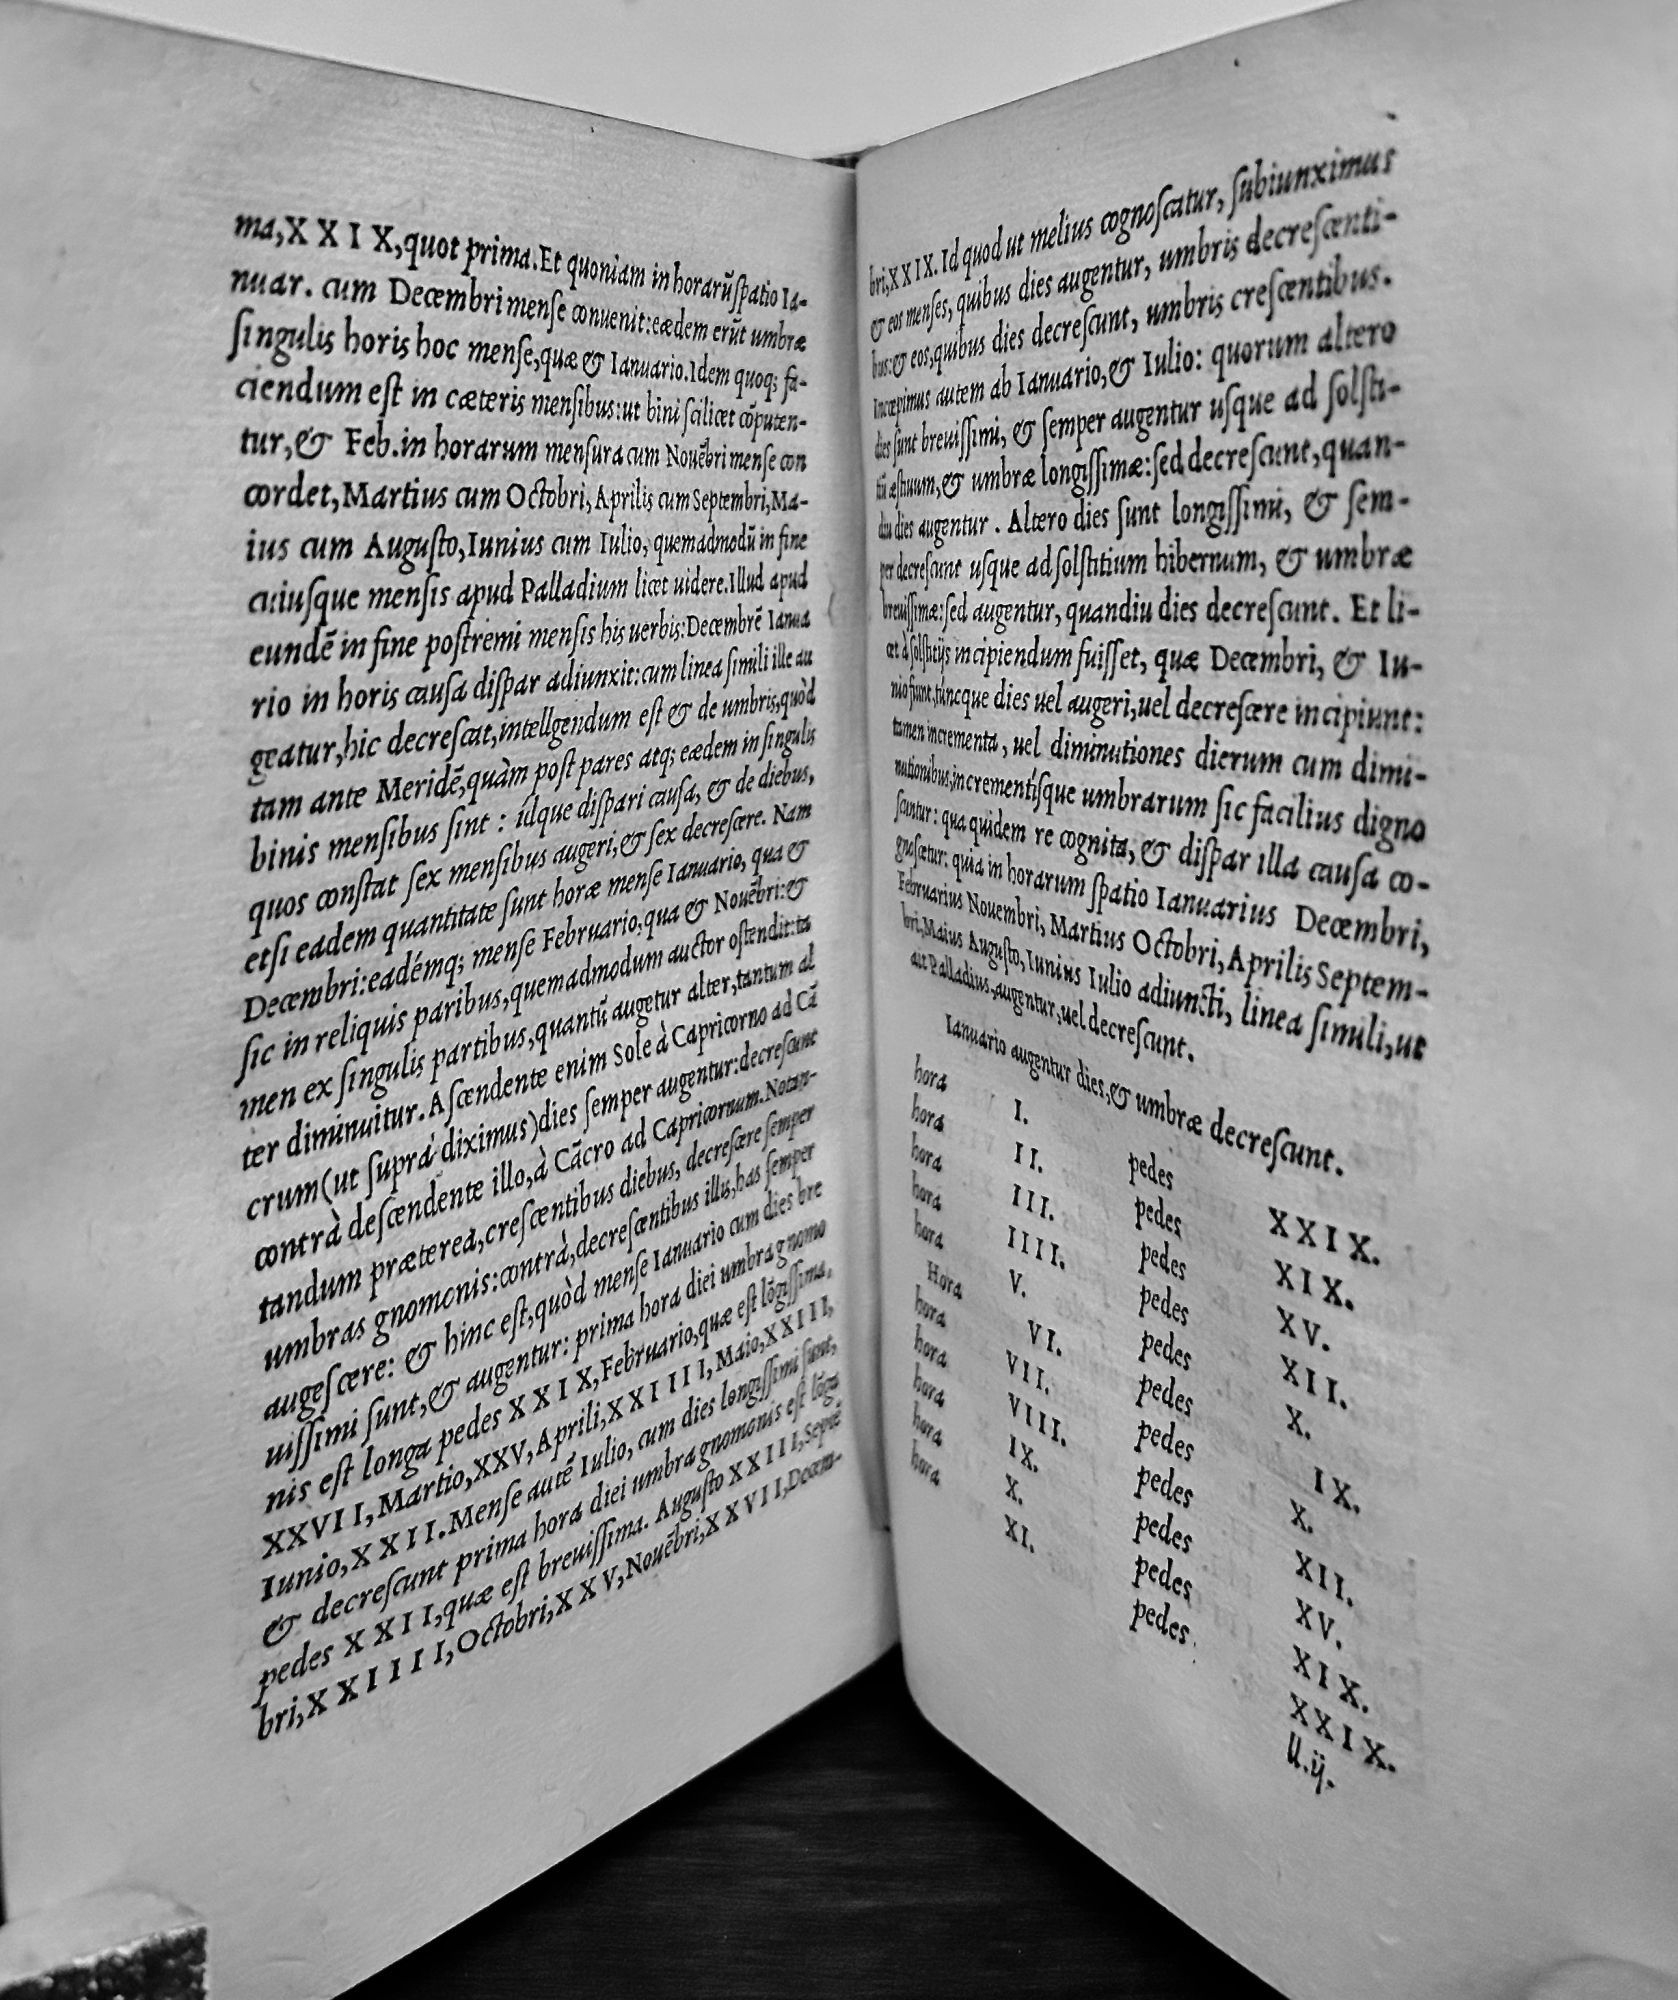 ma,XXIX,quot prima.Et quoniam in horarũ ſpatio Ia-
nuar. cum Decembri menſe conuenit:eædem erũt umbræ
ſingulis horis hoc menſe,quæ & Ianuario.Idem quoq; fa-
ciendum eſt in cæteris menſibus:ut bini ſcilicet cõputen-
tur,& Feb.in horarum menſura cum Nouẽbri menſe con
cordet,Martius cum Octobri,Aprilis cum Septembri,Ma-
ius cum Auguſto,Iunius cum Iulio, quemadmodũ in fine
cuiuſque menſis apud Palladium licet uidere.Illud apud
eundẽ in fine poſtremi menſis his uerbis:Decembrẽ Ianua
rio in horis cauſa diſpar adiunxit:cum linea ſimili ille au
geatur,hic decreſcat,intellgendum eſt & de umbris,quòd
tam ante Meridẽ,quàm poſt pares atq; eædem in ſingulis
binis menſibus ſint : idque diſpari cauſa, & de diebus,
quos conſtat ſex menſibus augeri,& ſex decreſcere. Nam
etſi eadem quantitate ſunt horæ menſe Ianuario, qua &
Decembri:eadémq; menſe Februario,qua & Nouẽbri:&
ſic in reliquis paribus,quemadmodum auctor oſtendit:ta
men ex ſingulis partibus,quantũ augetur alter,tantum al
ter diminuitur.Aſcendente enim Sole à Capricorno ad Cã
crum(ut ſuprà diximus)dies ſemper augentur:decreſcunt
contrà deſcendente illo,à Cãcro ad Capricornum.Notan-
tandum præterea,creſcentibus diebus, decreſcere ſemper
umbras gnomonis:contrà,decreſcentibus illis,has ſemper
augeſcere: & hinc eſt,quòd menſe Ianuario cum dies bre
uiſſimi ſunt,& augentur: prima hora diei umbra gnomo
nis eſt longa pedes XXIX,Februario,quæ eſt lõgiſſima,
XXVII,Martio,XXV,Aprili,XXIIII,Maio,XXIII,
Iunio,XXII.Menſe autẽ Iulio, cum dies longiſſimi ſunt,
& decreſcunt prima hora diei umbra gnomonis eſt lõga
pedes XXII,quæ eſt breuiſſima. Auguſto XXIII,Septẽ
bri,XXIIII,Octobri,XXV,Nouẽbri,XXVII,Decem-
bri,XXIX.Id quod ut melius cognoſcatur, ſubiunximus
& eos menſes, quibus dies augentur, umbris decreſcenti-
bus:& eos,quibus dies decreſcunt, umbris creſcentibus.
Incœpimus autem ab Ianuario,& Iulio: quorum altero
dies ſunt breuiſſimi, & ſemper augentur uſque ad ſolſti-
tiũ æſtiuum,& umbræ longiſſimæ:ſed decreſcunt,quan-
diu dies augentur . Altero dies ſunt longiſſimi, & ſem-
per decreſcunt uſque ad ſolſtitium hibernum, & umbræ
breuiſſimæ:ſed augentur, quandiu dies decreſcunt. Et li-
cet à ſolſtitijs incipiendum fuiſſet, quæ Decembri, & Iu-
nio fiunt,túncque dies uel augeri,uel decreſcere incipiunt:
tamen incrementa, uel diminutiones dierum cum dimi-
nutionibus,incrementíſque umbrarum ſic facilius digno
ſcuntur: qua quidem re cognita, & diſpar illa cauſa co-
gnoſcetur: quia in horarum ſpatio Ianuarius Decembri,
Februarius Nouembri, Martius Octobri,Aprilis Septem-
bri,Maius Auguſto,Iunius Iulio adiuncti, linea ſimili,ut
ait Palladius,augentur,uel decreſcunt.
Ianuario augentur dies,& umbræ decreſcunt.
hora I. pedes XXIX.
hora II. pedes XIX.
hora III. pedes XV.
hora IIII. pedes XII.
hora V. pedes X.
Hora VI. pedes IX.
hora VII. pedes X.
hora VIII. pedes XII.
hora IX. pedes XV.
hora X. pedes XIX.
hora XI. pedes XXIX.
U.ij.